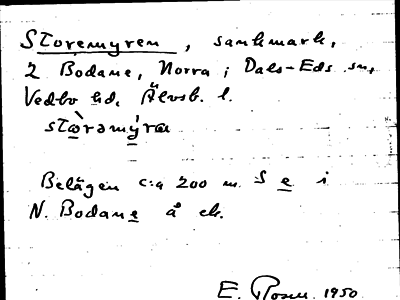 Storemyren, sankmark,
2 Bodane, Norra i Dals-Eds sn,
Vedbo hd, Älvsb. l.
stòrəmýra
Belägen c:a 200 m. S e i
N. Bodane å ek.
E. Rosen 1950